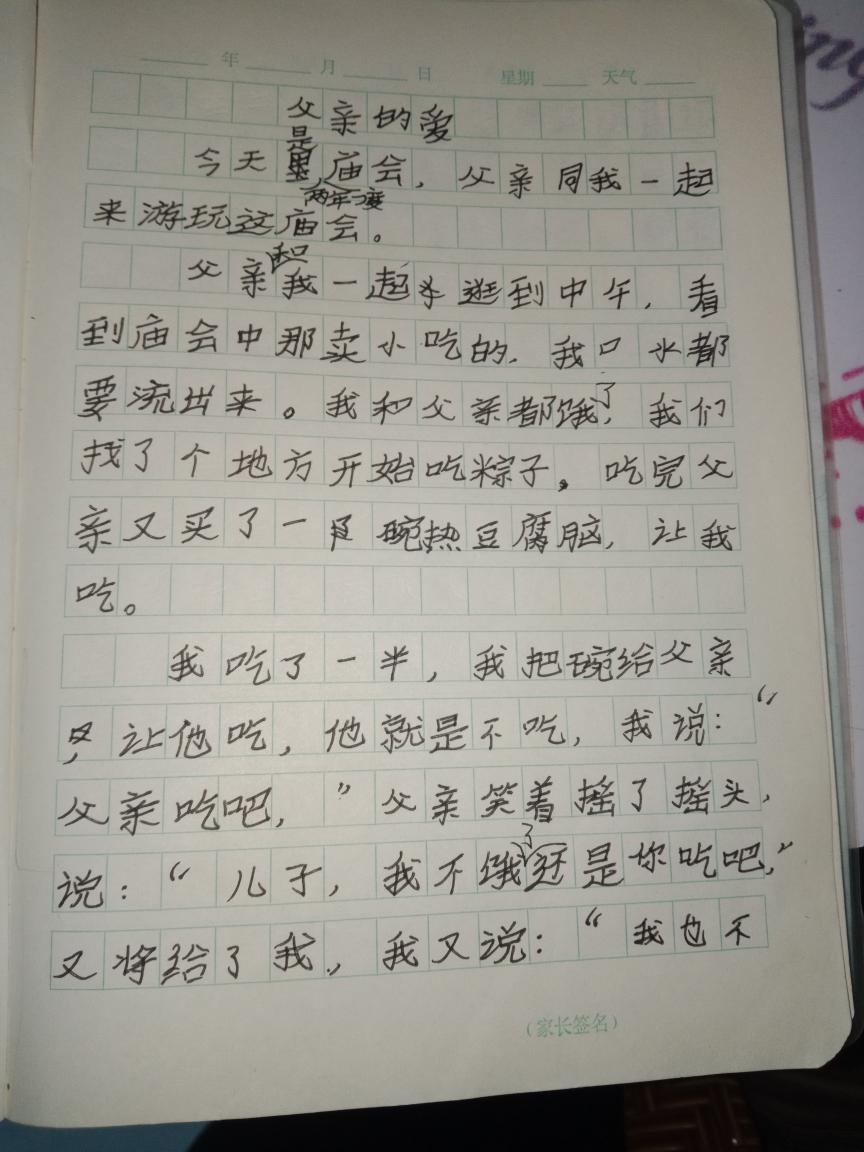 年 月 日 星期 天气
父亲的爱
今天是庙会，父亲同我一起
两年一度
来游玩这庙会。
父亲和我一起来逛到中午，看
到庙会中那卖小吃的．我口水都
要流出来。我和父亲都饿了，我们
找了个地方开始吃粽子。吃完父
亲又买了一碗热豆腐脑，让我
吃。
我吃了一半，我把碗给父亲
，让他吃，他就是不吃，我说：“
父亲吃吧，”父亲笑着摇了摇头，
说：“儿子，我不饿了还是你吃吧，”
又将给了我．，我又说：“我也不
（家长签名）
ing